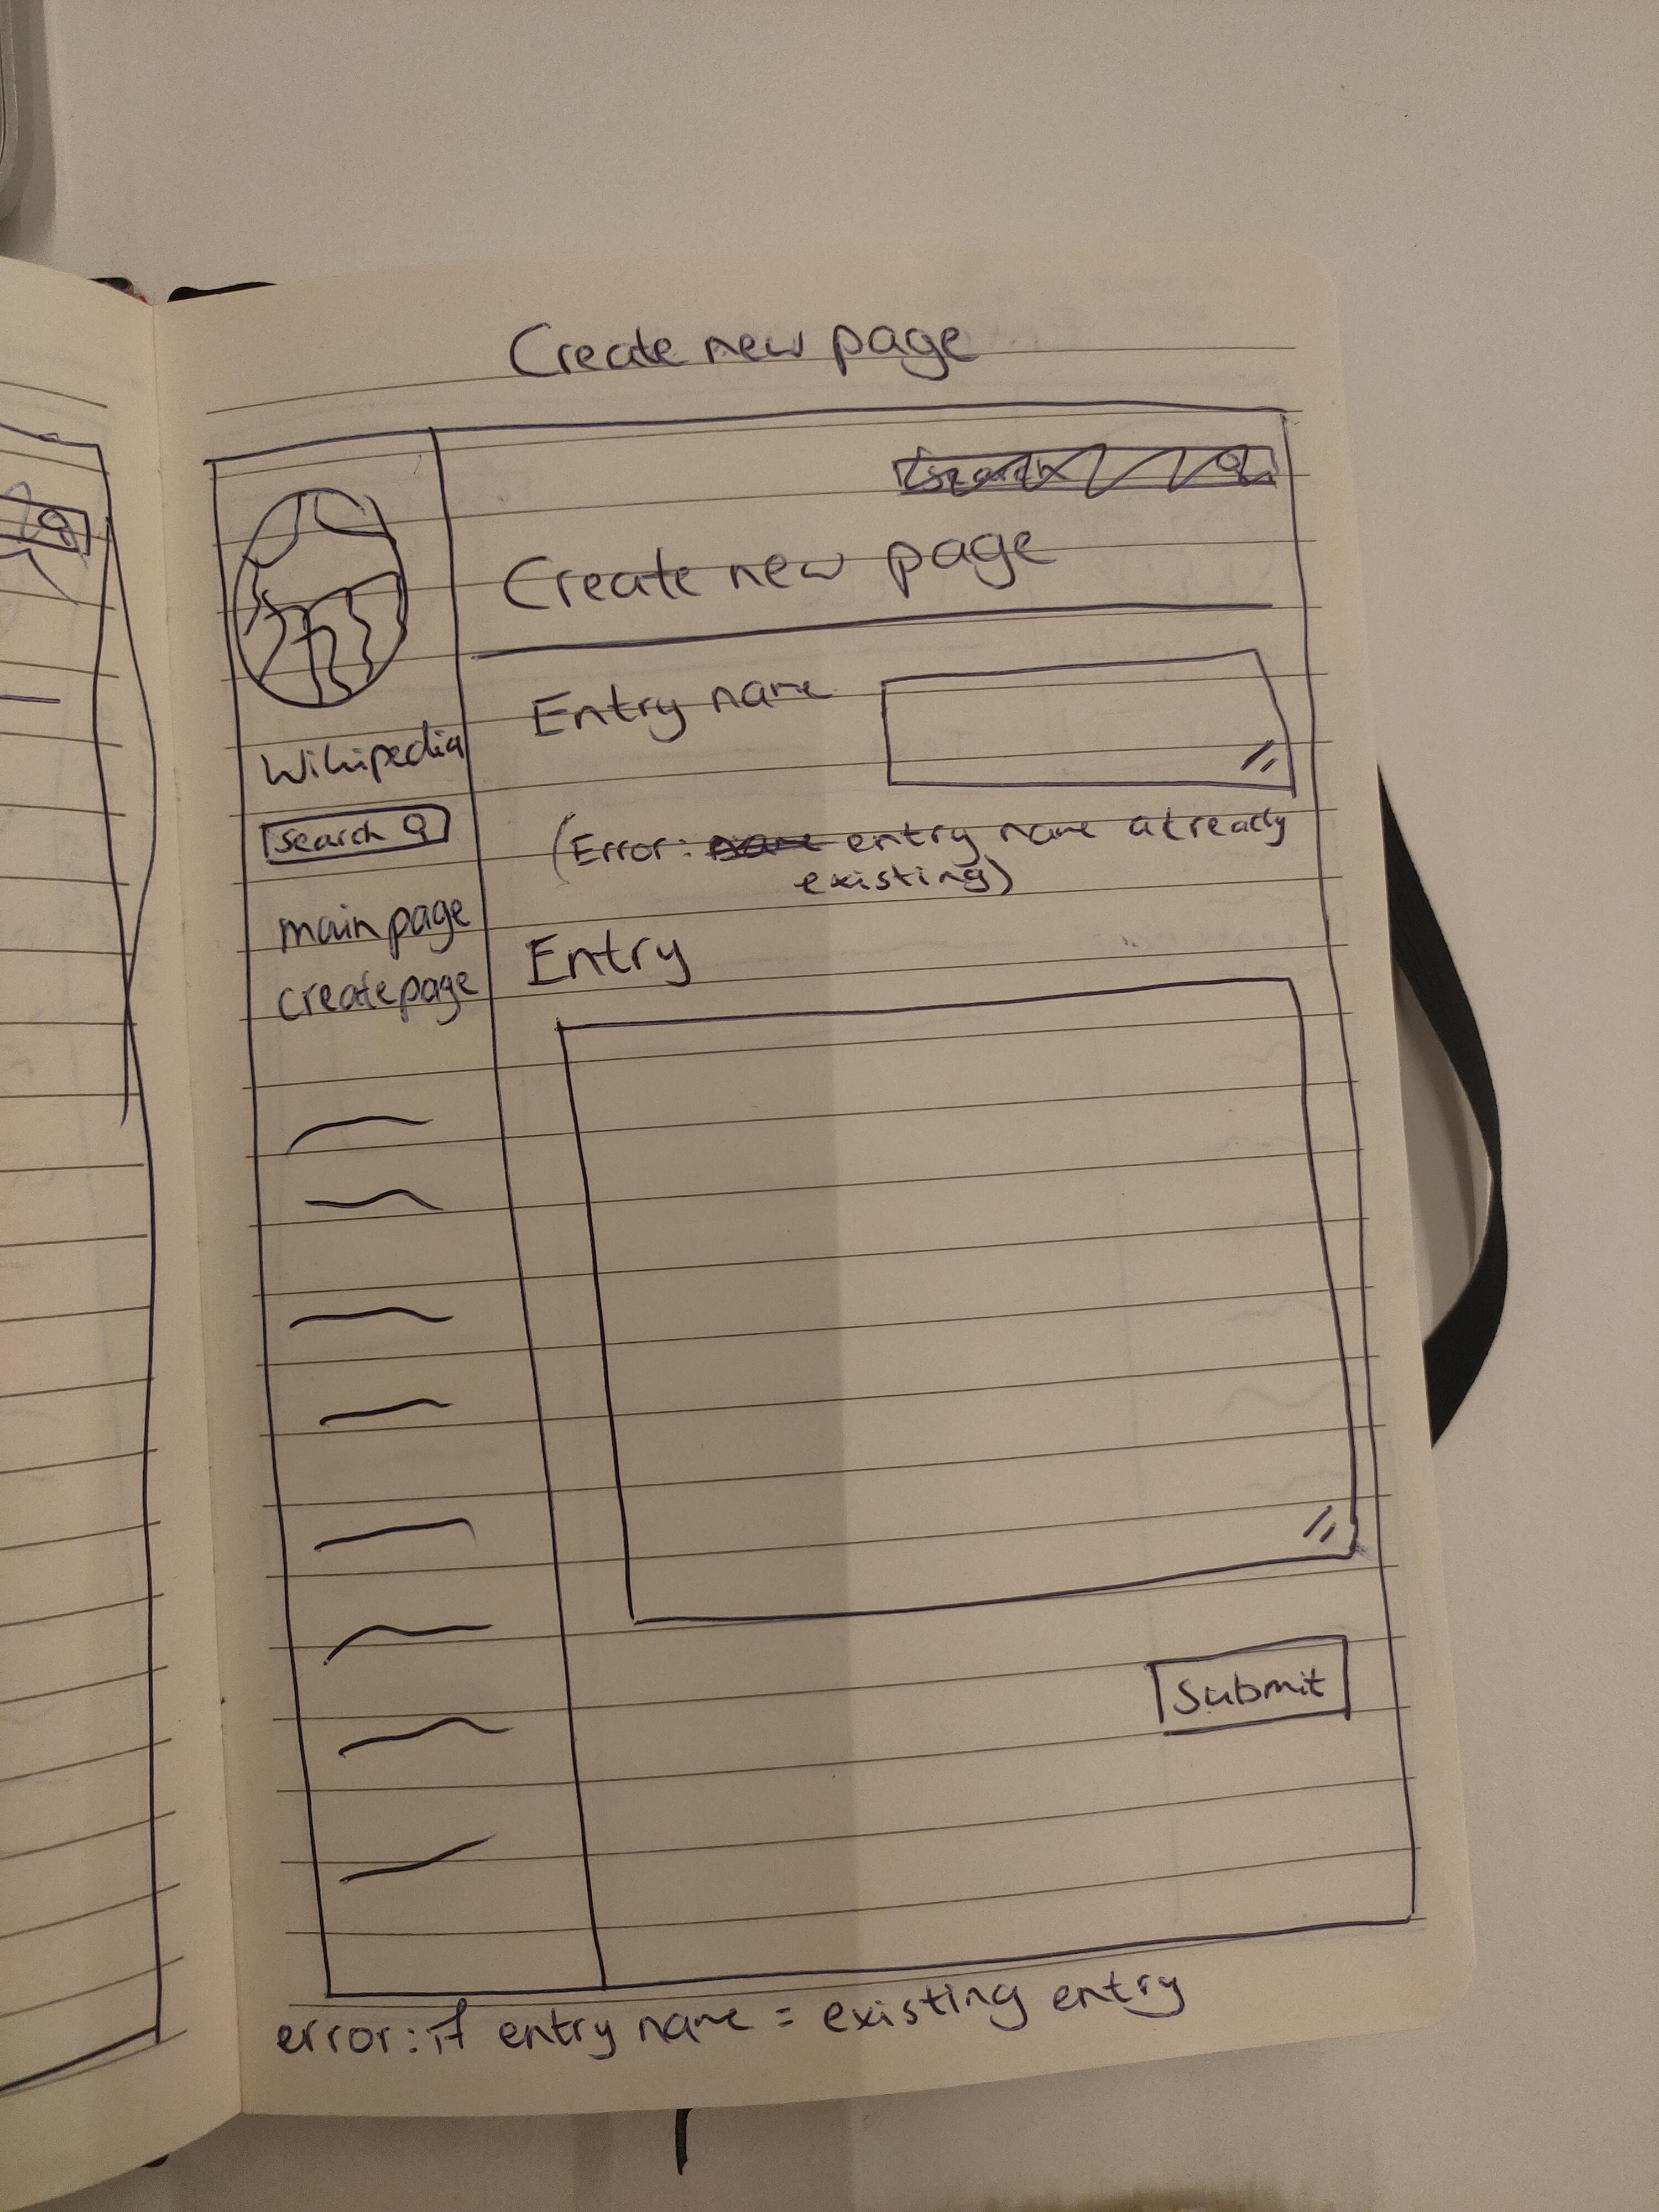 Create new page
Create new page
Wikipedia
search
main page
create page
Entry name
(Error: entry name already
existing)
Entry
Submit
error: if entry name = existing entry